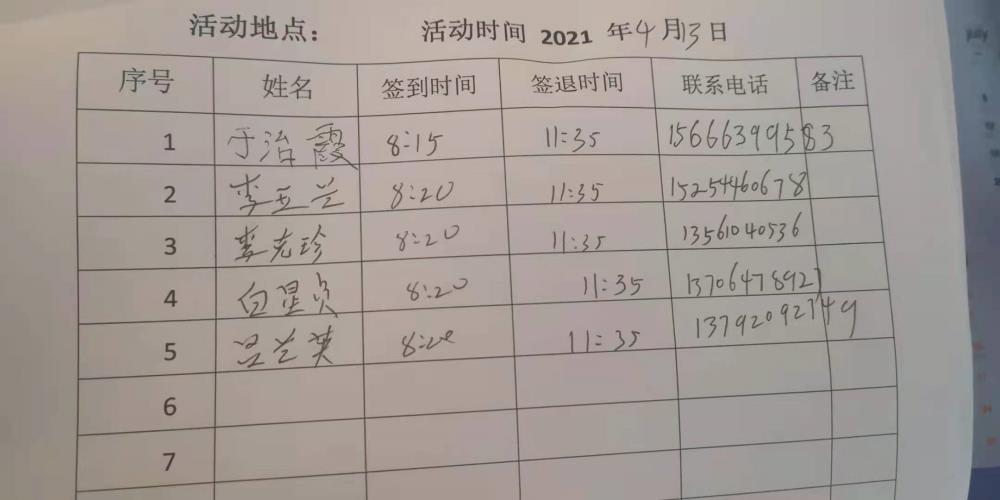 活动地点： 活动时间 2021 年4月13日
序号 姓名 签到时间 签退时间 联系电话 备注
1 于治霞 8:15 11:35 15666399583
2 李玉兰 8:20 11:35 15254460678
3 李克珍 8:20 11:35 13561040536
4 白星贞 8:20 11:35 13706478927
5 吕兰英 8:20 11:35 13792092749
6
7